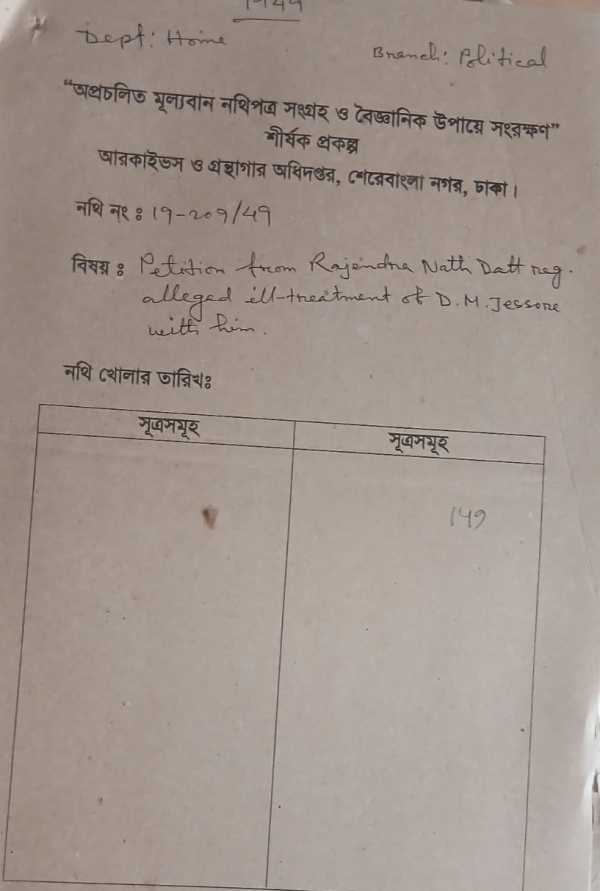 1949
Dept: Home
Branch: Political
“অপ্রচলিত মূল্যবান নথিপত্র সংগ্রহ ও বৈজ্ঞানিক উপায়ে সংরক্ষণ”
শীর্ষক প্রকল্প
আরকাইভস ও গ্রন্থাগার অধিদপ্তর, শেরেবাংলা নগর, ঢাকা।
নথি নং : 19-209/49
বিষয় : Petition from Rajendra Nath Datt reg.
alleged ill-treatment of D.M. Jessore
with him.
নথি খোলার তারিখঃ
সূত্রসমূহ
সূত্রসমূহ
149